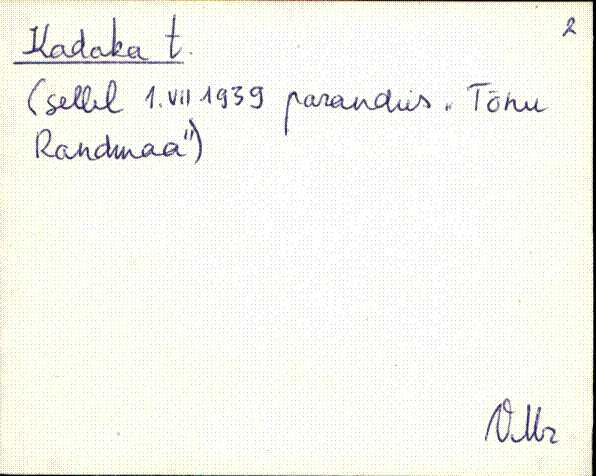 2
Kadaka t.
(sellel 1.VII 1939 parandus „Tõnu
Randmaa")
VMr